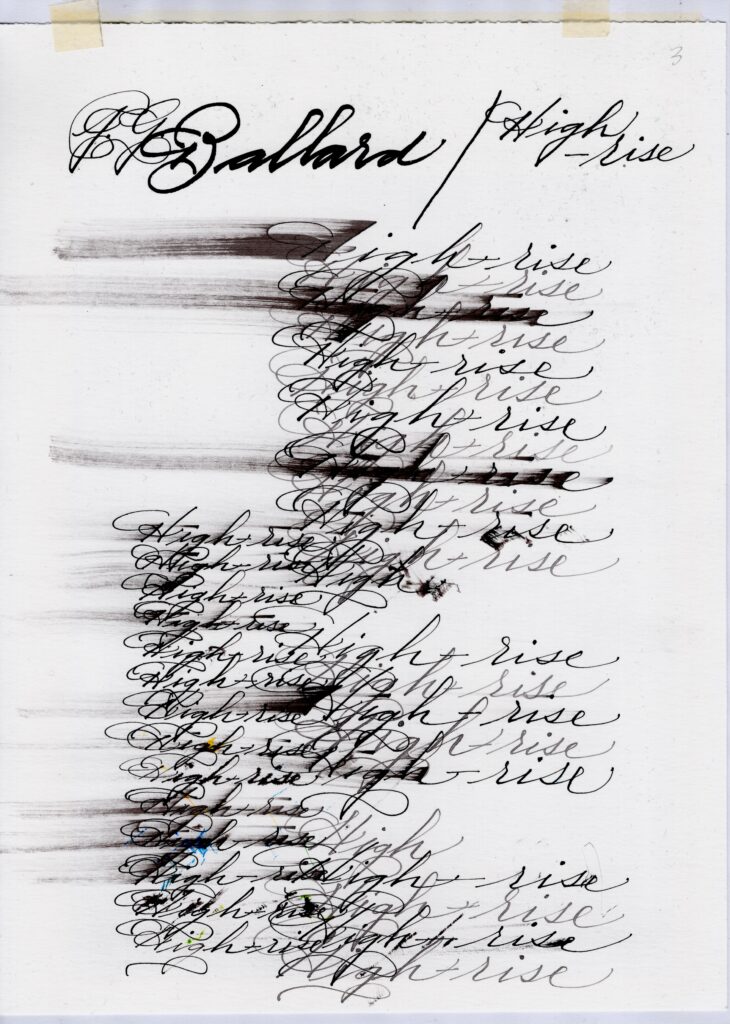 3
J. G. Ballard / High
-rise
High-rise
High-rise
High-rise
High-rise
High-rise
High-rise
High-rise
High-rise
High-rise High-rise
High-rise High-rise
High-rise High
High-rise
High-rise High-rise
High-rise High-rise
High-rise High-rise
High-rise High-rise
High-rise High-rise
High-rise
High-rise High
High-rise High-rise
High-rise High-rise
High-rise High-rise
High-rise